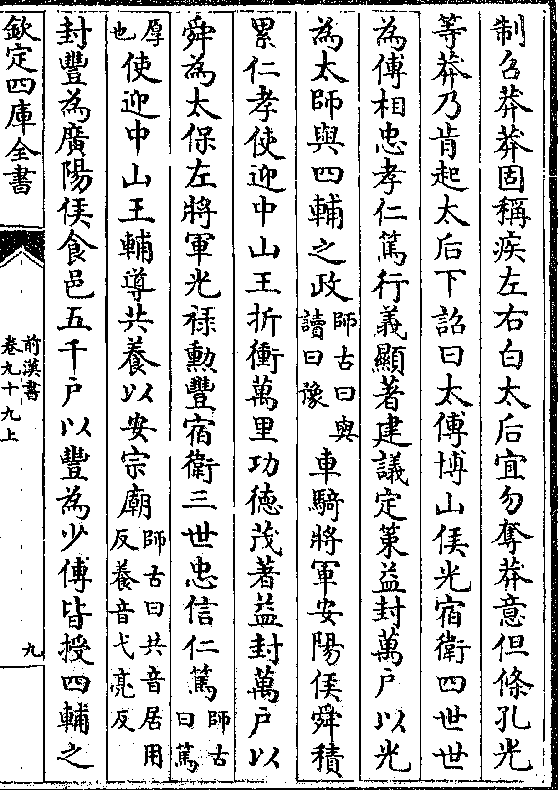 制召莽莽固稱疾左右白太后宜勿奪莽意但條孔光
等莽乃肯起太后下詔曰太傅博山侯光宿衛四世世
為傅相忠孝仁篤行義顯著建議定策益封萬戶以光
為太師與四輔之政師古曰與讀曰豫車騎將軍安陽侯舜積
累仁孝使迎中山王折衝萬里功德茂著益封萬戶以
舜為太保左將軍光祿勳豐宿衛三世忠信仁篤師古曰篤
厚也使迎中山王輔導共養以安宗廟師古曰共音居用反養音弋亮反
封豐為廣陽侯食邑五千戶以豐為少傅皆授四輔之
欽定四庫全書
前漢書
卷九十九上
九